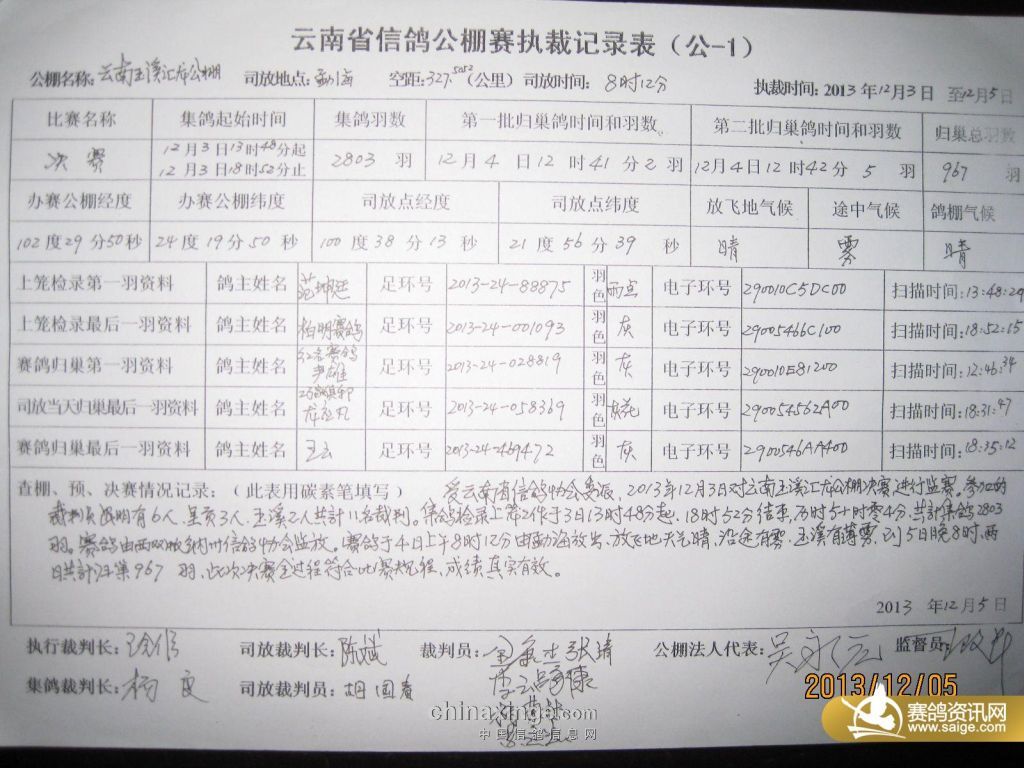 云南省信鸽公棚赛执裁记录表（公-1）
公棚名称：云南玉溪汇龙公棚 司放地点：勐海 空距：327.5052（公里） 司放时间：8时12分 执裁时间：2013年12月3日 至12月5日
比赛名称 集鸽起始时间 集鸽羽数 第一批归巢鸽时间和羽数。 第二批归巢鸽时间和羽数 归巢总羽数
决赛 12月3日13时48分起 12月3日18时52分止 2803 羽 12月4日12时41分2羽 12月4日12时42分5羽 967 羽
办赛公棚经度 办赛公棚纬度 司放点经度 司放点纬度 放飞地气候 途中气候 鸽棚气候
102度29分50秒 24度19分50秒 100度38分13秒 21度56分39秒 晴 雾 晴
上笼检录第一羽资料 鸽主姓名 足环号 2013-24-88875 羽色 雨点 电子环号 290010C5DC00 扫描时间：13:48:29
上笼检录最后一羽资料 鸽主姓名 柏明赛鸽 足环号 2013-24-001093 羽色 灰 电子环号 29005466C100 扫描时间：18:52:15
赛鸽归巢第一羽资料 鸽主姓名 足环号 2013-24-028819 羽色 灰 电子环号 290010E81200 扫描时间：12:46:34
司放当天归巢最后一羽资料 鸽主姓名 足环号 2013-24-058369 羽色 电子环号 290054562A00 扫描时间：18:31:47
赛鸽归巢最后一羽资料 鸽主姓名 王云 足环号 2013-24-469472 羽色 灰 电子环号 2900546AA400 扫描时间：18:35:12
查棚、预、决赛情况记录：（此表用碳素笔填写） 受云南省信鸽协会委派，2013年12月3日对云南玉溪汇龙公棚决赛进行监赛。参加的
裁判员昆明有6人，呈贡3人，玉溪2人共计11名裁判。集鸽检录上笼工作于3日13时48分起，18时52分结束，历时5小时零4分，共计集鸽2803
羽。赛鸽由西双版纳州信鸽协会监放。赛鸽于4日上午8时12分由勐海放出，放飞地天气晴，沿途有雾，玉溪有薄雾，到5日晚8时，两
日共计归巢967 羽，此次决赛全过程符合比赛规程，成绩真实有效。
2013 年12月5日
执行裁判长： 司放裁判长：陈斌 裁判员： 张靖 公棚法人代表：吴永元 监督员：
集鸽裁判长：杨良 司放裁判员：胡国贵
2013/12/05
chinaxinge.com
中国信鸽信息网
赛鸽资讯网
www.saige.com